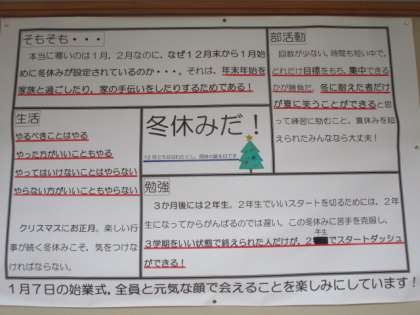 そもそも・・・
本当に寒いのは1月、2月なのに、なぜ12月末から1月始
めに冬休みが設定されているのか・・・。それは、年末年始を
家族と過ごしたり、家の手伝いをしたりするためである！
部活動
回数が少ない。時間も短い中で、
どれだけ目標をもち、集中できる
かが勝負。冬に耐えた者だけ
が夏に笑うことができると思
って練習に励むこと。夏休みを超
えられたみんななら大丈夫！
生活
やるべきことはやる
やった方がいいこともやる
やってはいけないことはやらない
やらない方がいいこともやらない
クリスマスにお正月。楽しい行
事が続く冬休みこそ、気をつけな
ければならない。
冬休みだ！
勉強
3か月後には2年生。2年生でいいスタートを切るためには、2年
生になってからがんばるのでは遅い。この冬休みに苦手を克服し、
3学期をいい状態で終えられた人だけが、2年生でスタートダッシュ
ができる！
1月7日の始業式、全員と元気な顔で会えることを楽しみにしています！